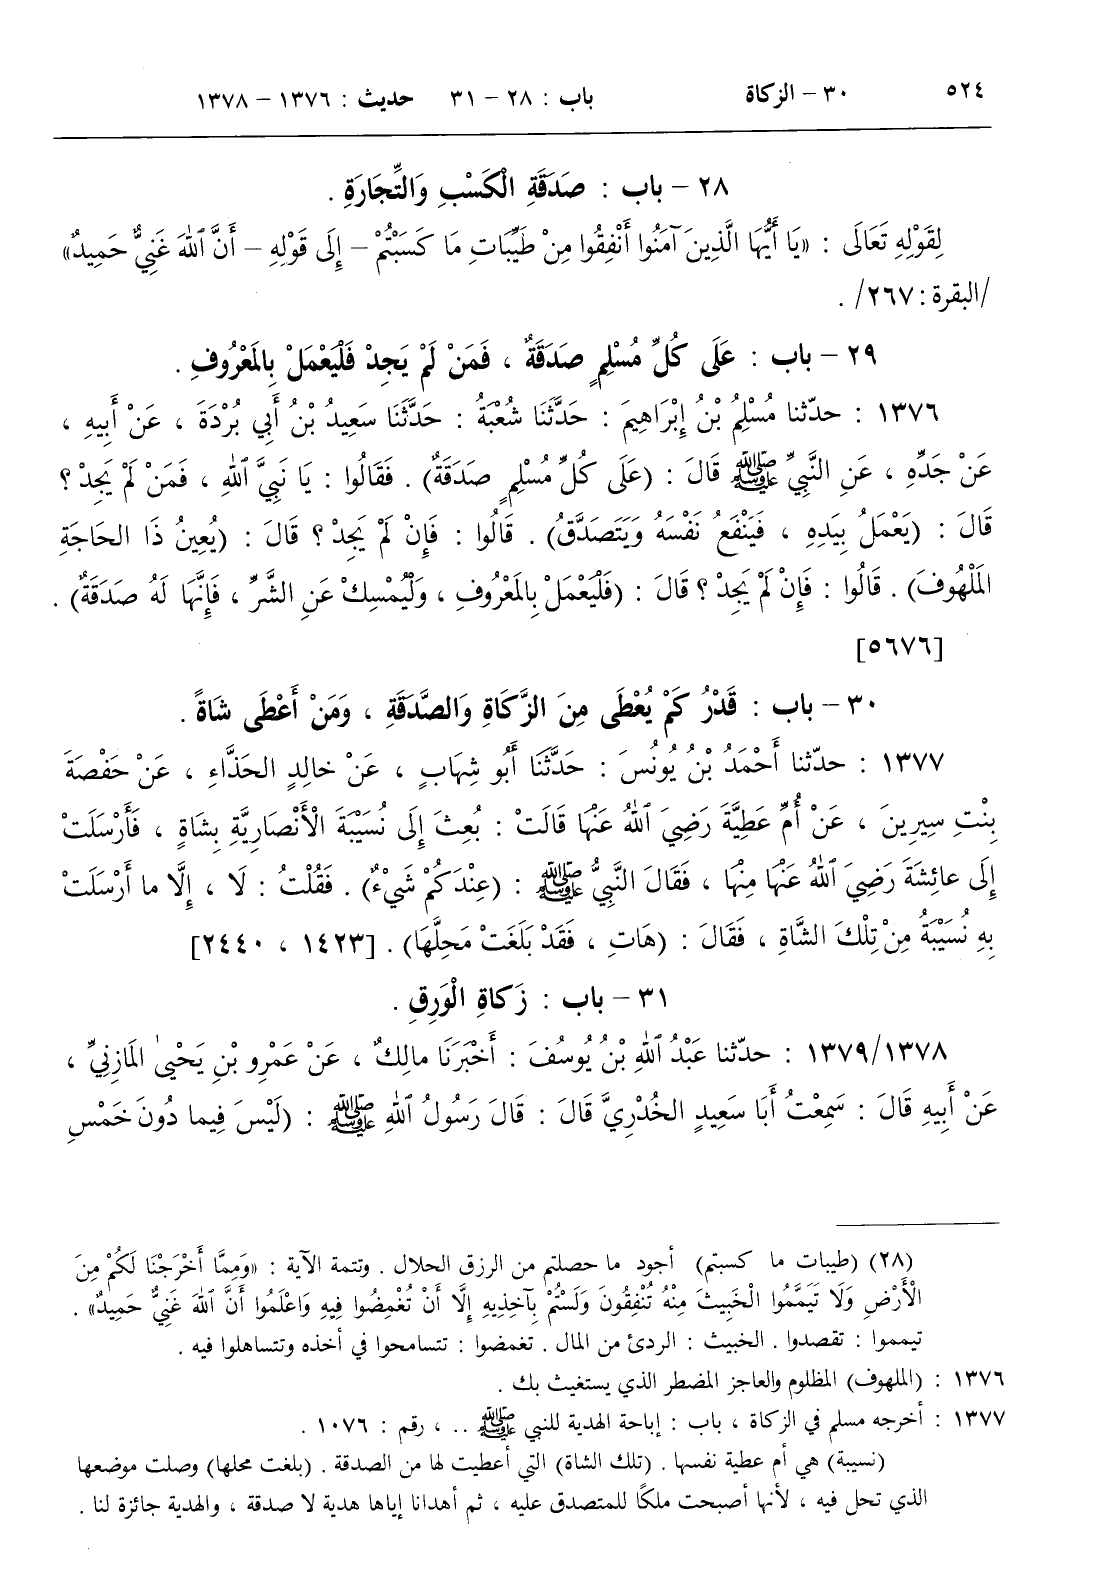 ٥٢٤ ٣٠ – الزكاة باب : ٢٨ – ٣١ حديث : ١٣٧٦ – ١٣٧٨
٢٨ – باب : صَدَقَةِ الْكَسْبِ وَالتِّجَارَةِ .
لِقَوْلِهِ تَعَالَى : «يَا أَيُّهَا الَّذِينَ آمَنُوا أَنْفِقُوا مِنْ طَيِّبَاتِ مَا كَسَبْتُمْ – إِلَى قَوْلِهِ – أَنَّ ٱللهَ غَنِيٌّ حَمِيدٌ»
/البقرة : ٢٦٧/ .
٢٩ – باب : عَلَى كُلِّ مُسْلِمٍ صَدَقَةٌ ، فَمَنْ لَمْ يَجِدْ فَلْيَعْمَلْ بِالْمَعْرُوفِ .
١٣٧٦ : حدّثنا مُسْلِمُ بْنُ إِبْرَاهِيمَ : حَدَّثَنَا شُعْبَةُ : حَدَّثَنَا سَعِيدُ بْنُ أَبِي بُرْدَةَ ، عَنْ أَبِيهِ ،
عَنْ جَدِّهِ ، عَنِ النَّبِيِّ ﷺ قَالَ : (عَلَى كُلِّ مُسْلِمٍ صَدَقَةٌ) . فَقَالُوا : يَا نَبِيَّ ٱللهِ ، فَمَنْ لَمْ يَجِدْ ؟
قَالَ : (يَعْمَلُ بِيَدِهِ ، فَيَنْفَعُ نَفْسَهُ وَيَتَصَدَّقُ) . قَالُوا : فَإِنْ لَمْ يَجِدْ ؟ قَالَ : (يُعِينُ ذَا الحَاجَةِ
المَلْهُوفَ) . قَالُوا : فَإِنْ لَمْ يَجِدْ ؟ قَالَ : (فَلْيَعْمَلْ بِالمَعْرُوفِ ، وَلْيُمْسِكْ عَنِ الشَّرِّ ، فَإِنَّهَا لَهُ صَدَقَةٌ) .
[٥٦٧٦]
٣٠ – باب : قَدْرُ كَمْ يُعْطَى مِنَ الزَّكَاةِ وَالصَّدَقَةِ ، وَمَنْ أَعْطَى شَاةً .
١٣٧٧ : حدّثنا أَحْمَدُ بْنُ يُونُسَ : حَدَّثَنَا أَبُو شِهَابٍ ، عَنْ خالِدٍ الحَذَّاءِ ، عَنْ حَفْصَةَ
بِنْتِ سِيرِينَ ، عَنْ أُمِّ عَطِيَّةَ رَضِيَ ٱللهُ عَنْهَا قَالَتْ : بُعِثَ إِلَى نُسَيْبَةَ الْأَنْصَارِيَّةِ بِشَاةٍ ، فَأَرْسَلَتْ
إِلَى عائِشَةَ رَضِيَ ٱللهُ عَنْهَا مِنْهَا ، فَقَالَ النَّبِيُّ ﷺ : (عِنْدَكُمْ شَيْءٌ) . فَقُلْتُ : لَا ، إِلَّا ما أَرْسَلَتْ
بِهِ نُسَيْبَةُ مِنْ تِلْكَ الشَّاةِ ، فَقَالَ : (هَاتِ ، فَقَدْ بَلَغَتْ مَحِلَّهَا) . [١٤٢٣ ، ٢٤٤٠]
٣١ – باب : زَكاةِ الْوَرِقِ .
١٣٧٩/١٣٧٨ : حدّثنا عَبْدُ ٱللهِ بْنُ يُوسُفَ : أَخْبَرَنَا مالِكٌ ، عَنْ عَمْرِو بْنِ يَحْيىٰ المَازِنِيِّ ،
عَنْ أَبِيهِ قَالَ : سَمِعْتُ أَبَا سَعِيدٍ الخُدْرِيَّ قَالَ : قَالَ رَسُولُ ٱللهِ ﷺ : (لَيْسَ فِيما دُونَ خَمْسِ
(٢٨) (طيبات ما كسبتم) أجود ما حصلتم من الرزق الحلال . وتتمة الآية : «وَمِمَّا أَخْرَجْنَا لَكُمْ مِنَ
الْأَرْضِ وَلَا تَيَمَّمُوا الْخَبِيثَ مِنْهُ تُنْفِقُونَ وَلَسْتُمْ بِآخِذِيهِ إِلَّا أَنْ تُغْمِضُوا فِيهِ وَاعْلَمُوا أَنَّ ٱللهَ غَنِيٌّ حَمِيدٌ» .
تيمموا : تقصدوا . الخبيث : الردئ من المال . تغمضوا : تتسامحوا في أخذه وتتساهلوا فيه .
١٣٧٦ : (الملهوف) المظلوم والعاجز المضطر الذي يستغيث بك .
١٣٧٧ : أخرجه مسلم في الزكاة ، باب : إباحة الهدية للنبي ﷺ .. ، رقم : ١٠٧٦ .
(نسيبة) هي أم عطية نفسها . (تلك الشاة) التي أعطيت لها من الصدقة . (بلغت محلها) وصلت موضعها
الذي تحل فيه ، لأنها أصبحت ملكًا للمتصدق عليه ، ثم أهدانا إياها هدية لا صدقة ، والهدية جائزة لنا .